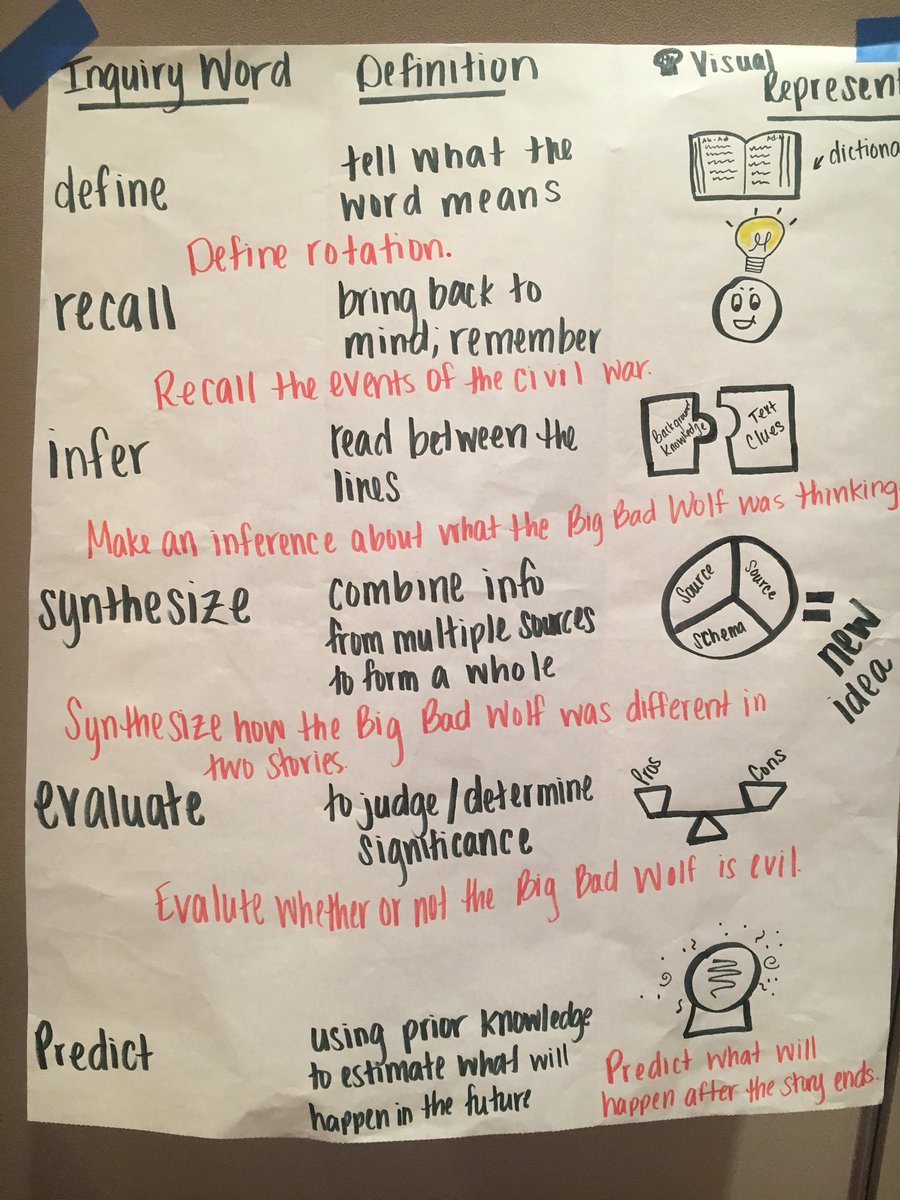 Inquiry Word Definition Visual
Represent
define
tell what the
word means
Ab-Ad
dictiona
Define rotation.
recall
bring back to
mind; remember
Recall the events of the civil war.
infer
read between the
lines
Background
Knowledge
Text
Clues
Make an inference about what the Big Bad Wolf was thinking
synthesize
combine info
from multiple sources
to form a whole
Source
Source
Schema
=
new
idea
Synthesize how the Big Bad Wolf was different in
two stories.
evaluate
to judge/determine
significance
Pros
Cons
Evalute whether or not the Big Bad Wolf is evil.
Predict
using prior knowledge
to estimate what will
happen in the future
Predict what will
happen after the story ends.